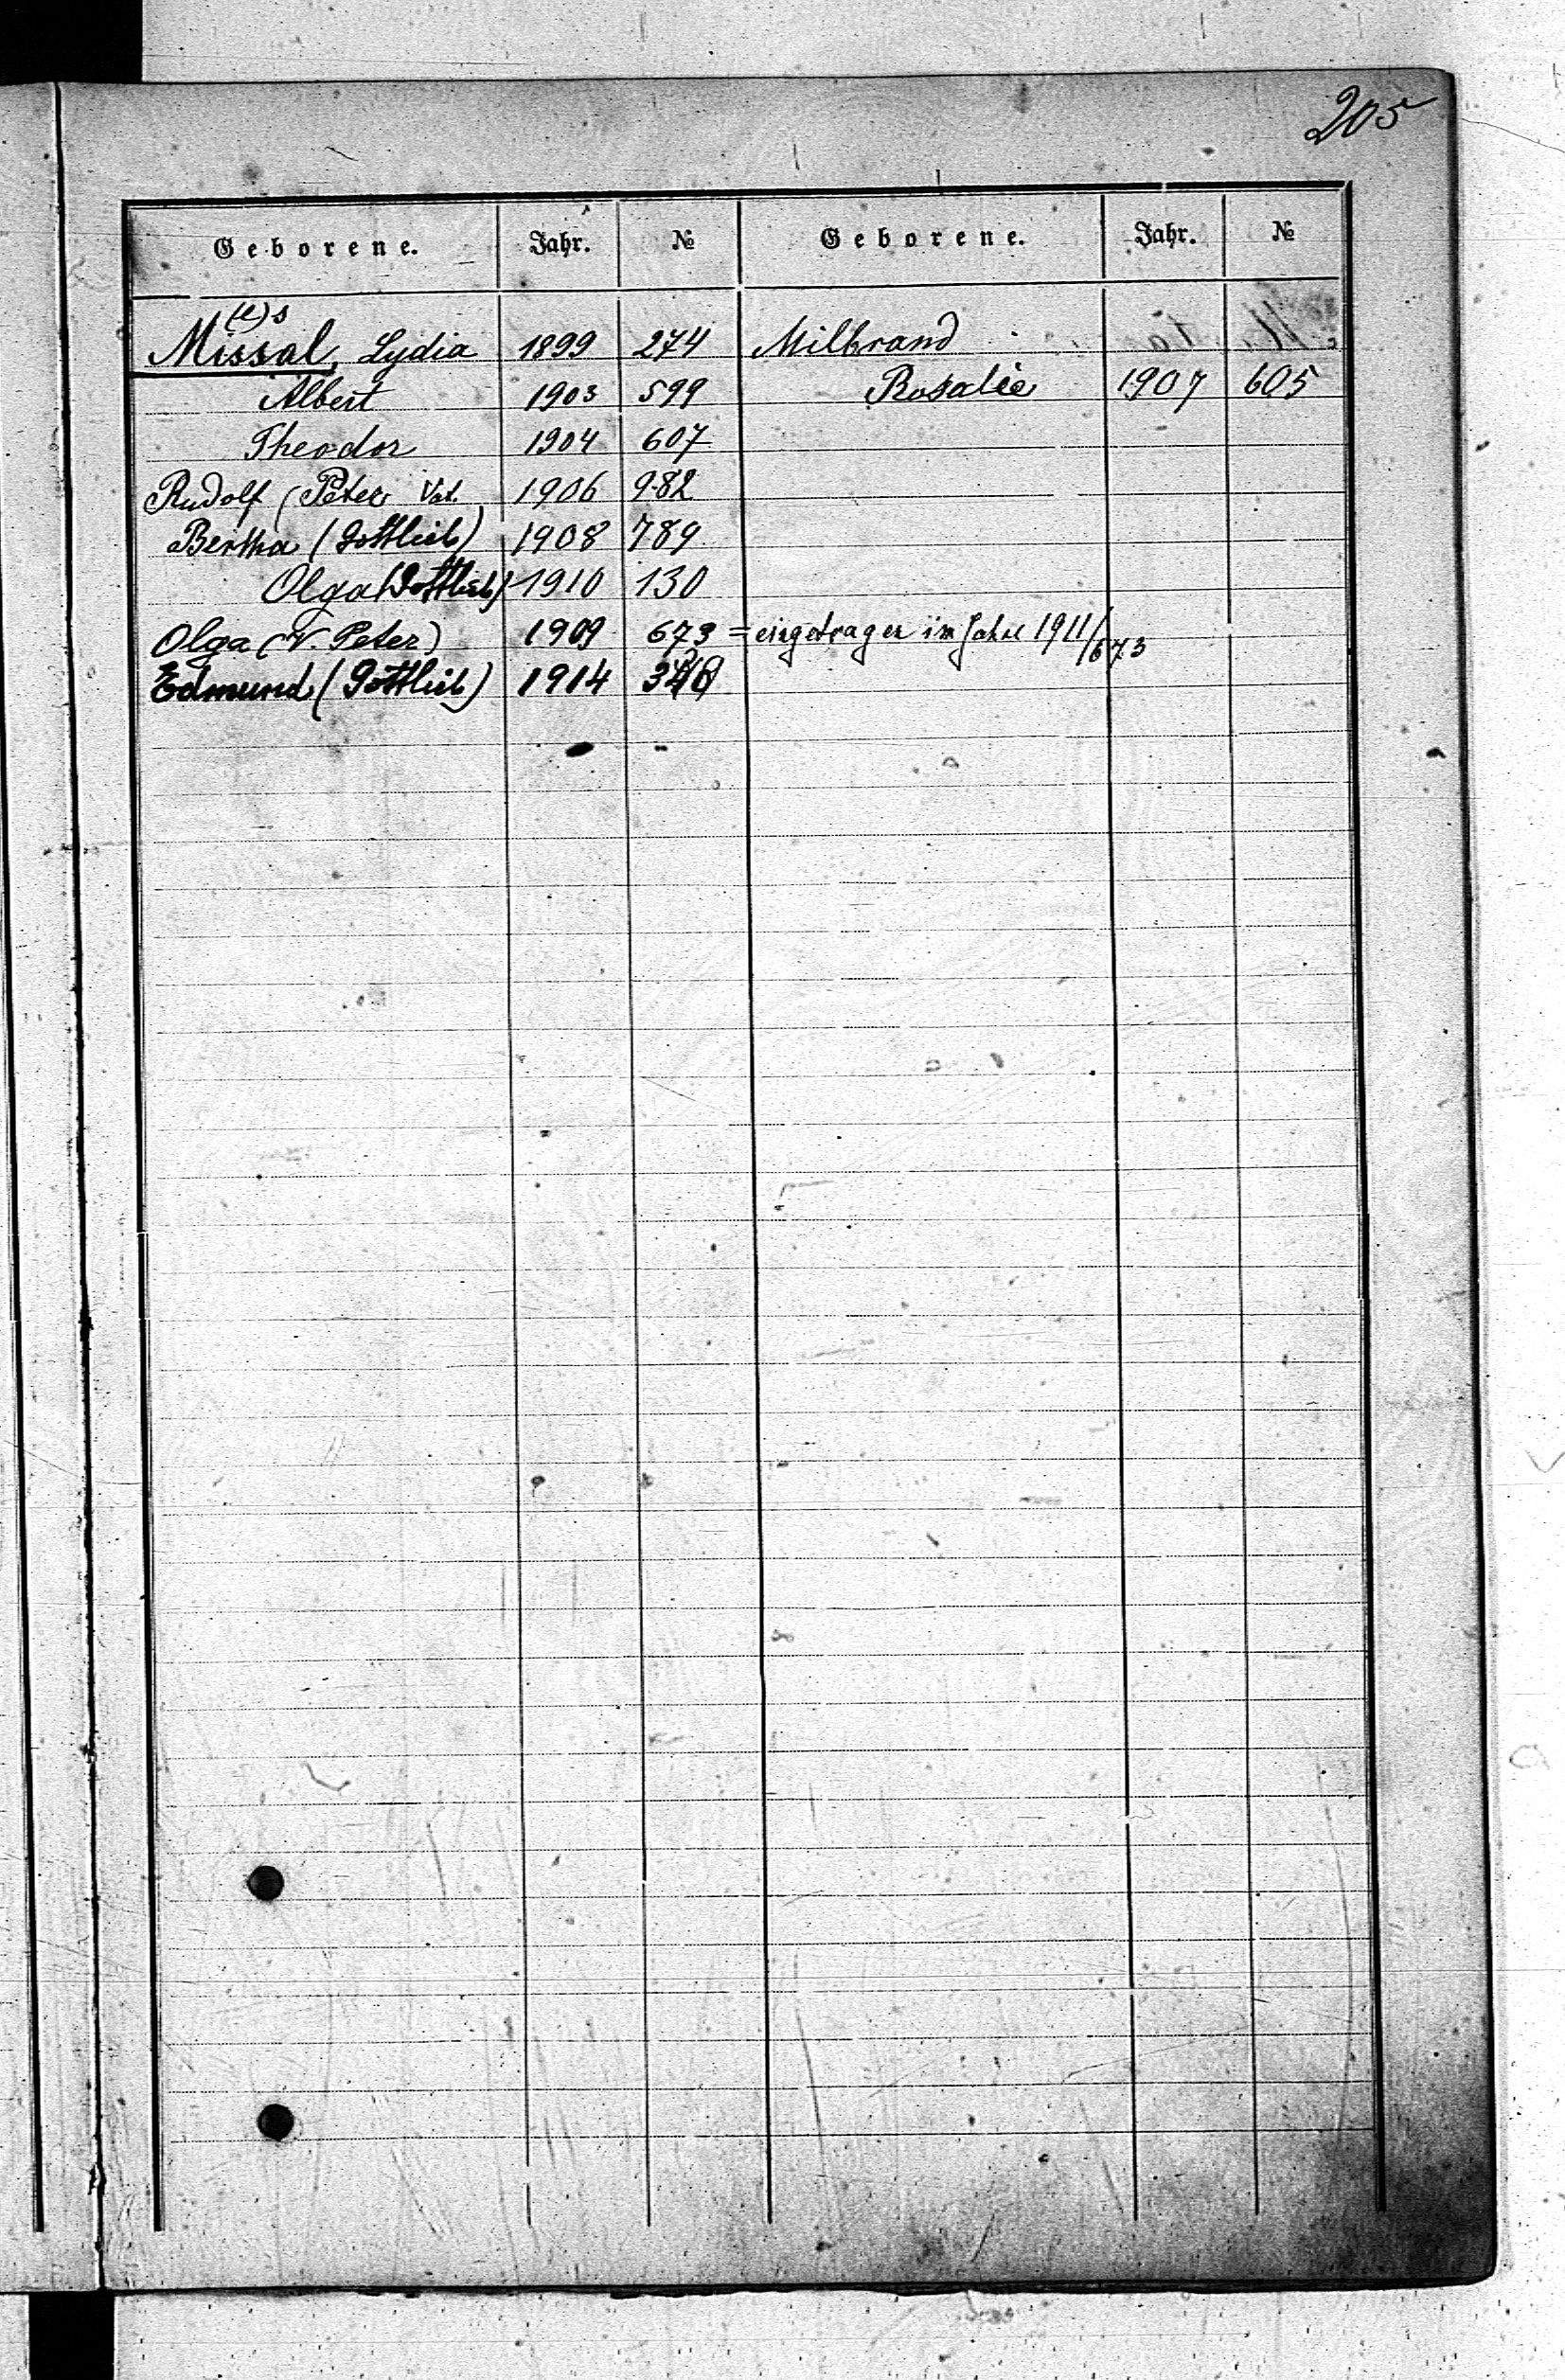 205
Geborene. Jahr. № Geborene. Jahr. №
(e)s
Missal, Lydia 1899 274 Milbrand
Albert 1903 599 Rosalie 1907 605
Theodor 1904 607
Rudolf (Peter Vat. 1906 982
Bertha (Gottlieb) 1908 789
Olga (Gottlieb) 1910 130
Olga (V. Peter) 1909 673 = eingetragen im Jahre 1911/673
Edmund (Gottlieb) 1914